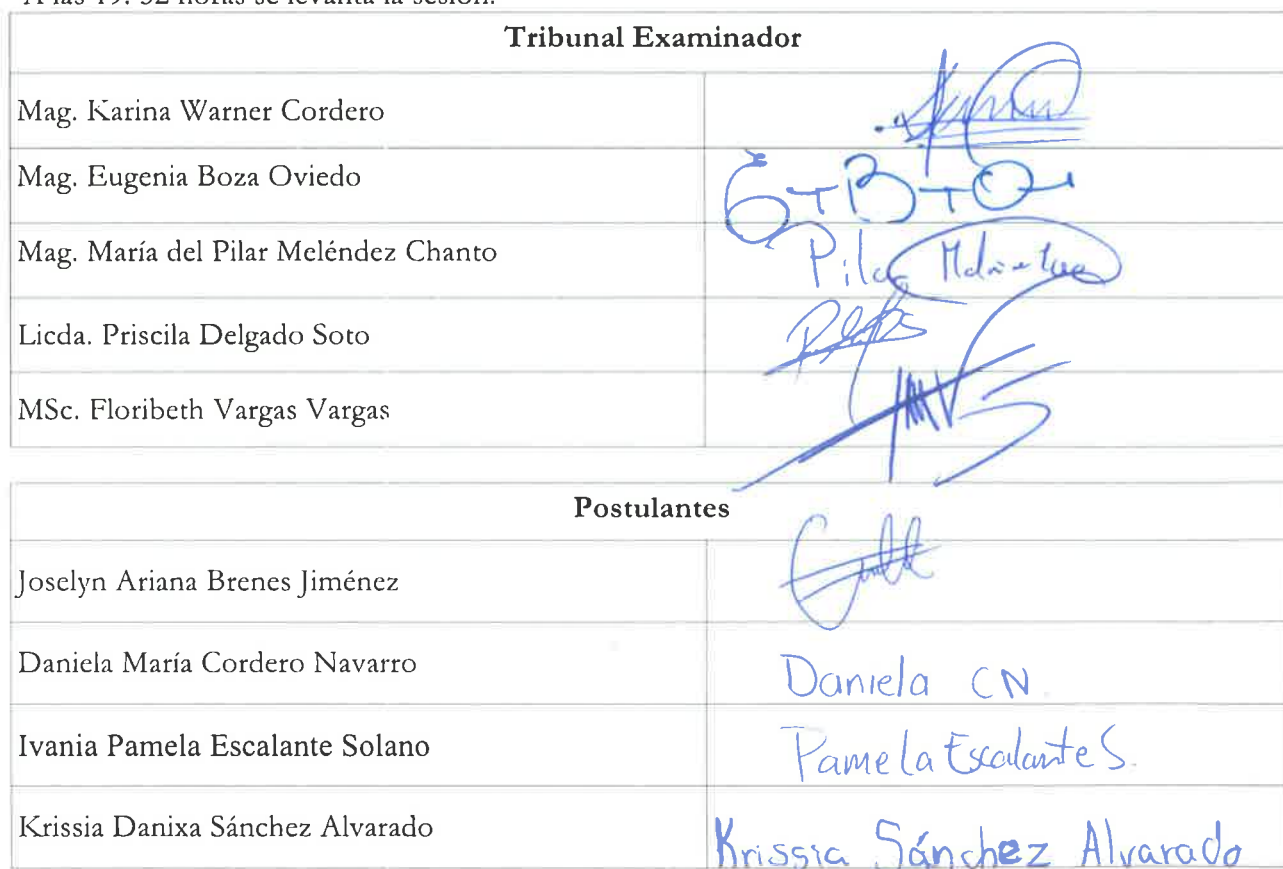 A las 19: 32 horas se levanta la sesión.
Tribunal Examinador
Mag. Karina Warner Cordero
Mag. Eugenia Boza Oviedo E+B+O
Mag. María del Pilar Meléndez Chanto Pilar
Licda. Priscila Delgado Soto
MSc. Floribeth Vargas Vargas
Postulantes
Joselyn Ariana Brenes Jiménez
Daniela María Cordero Navarro Daniela CN
Ivania Pamela Escalante Solano Pamela Escalante S.
Krissia Danixa Sánchez Alvarado Krissia Sánchez Alvarado